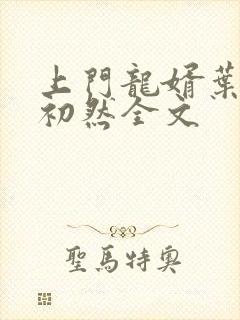 上門龍婿葉
初然全文
聖馬特奧